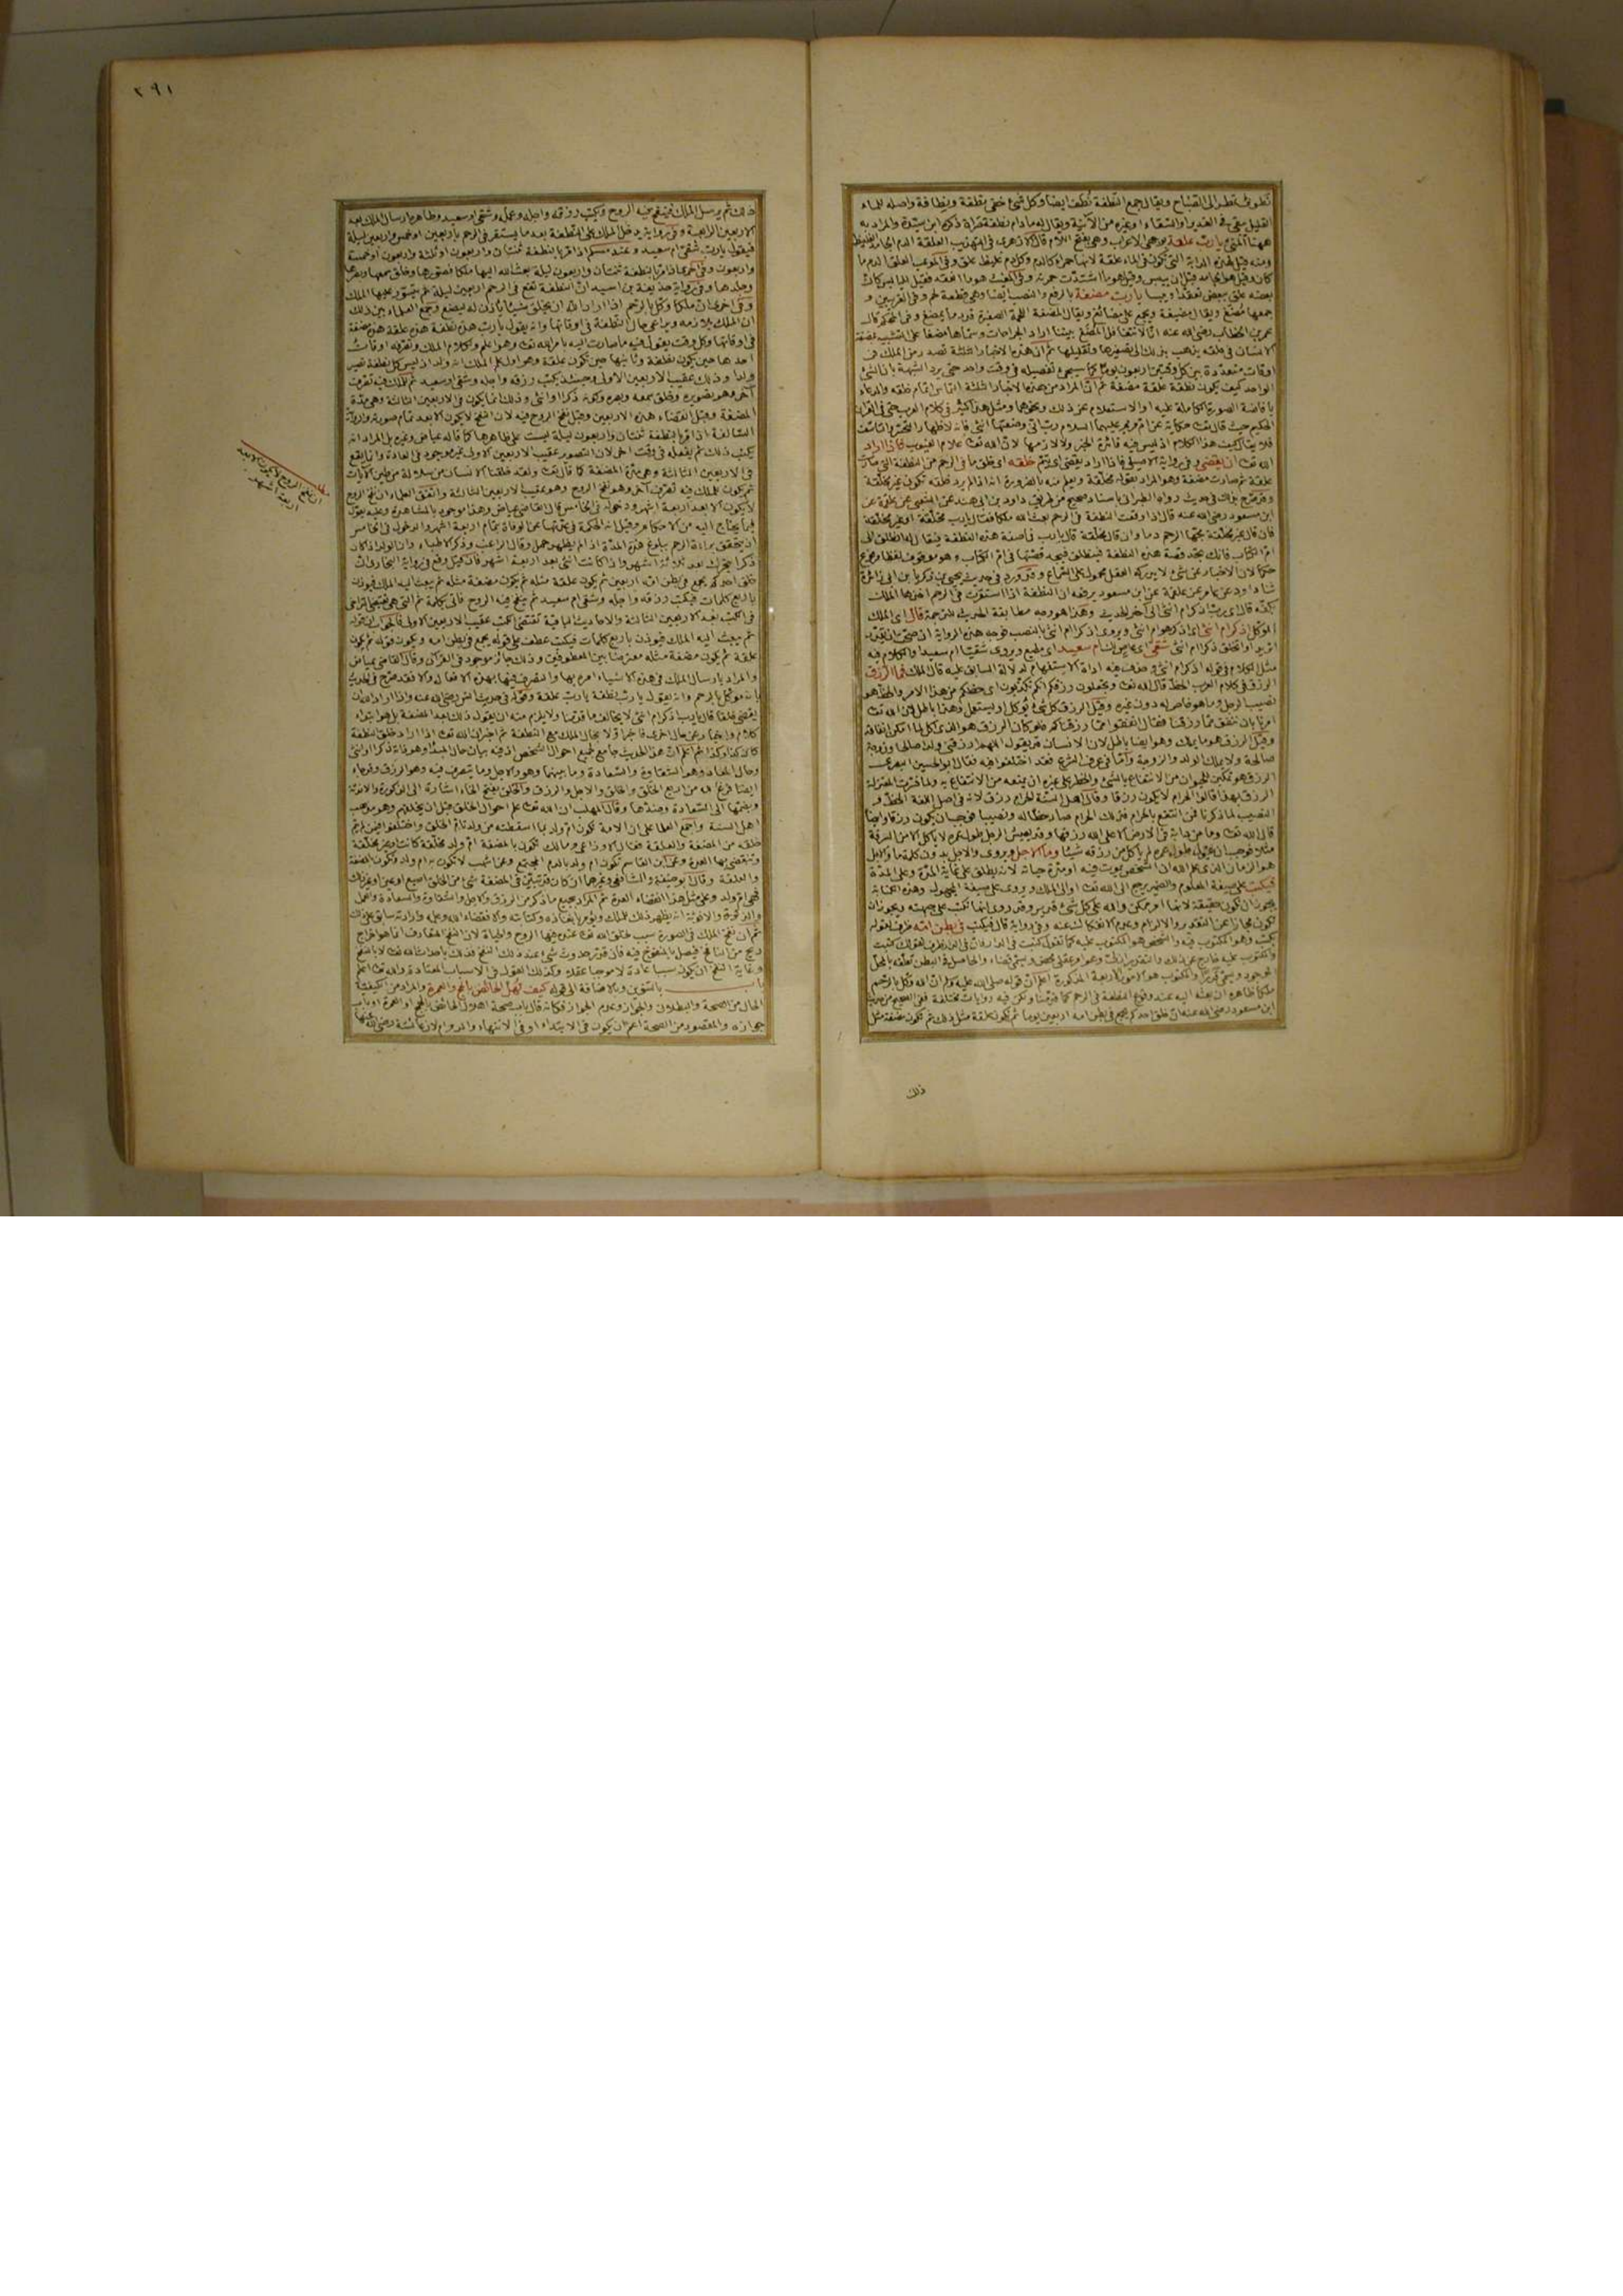 نطوف تقطر الى الصباح ويقال جمع النطفة نطف ايضا وكل شئ خفي نطفة ونطافة واصله الماء
القليل يبقى في الغدير او السقاء او غيره من الآنية ويقال له ما دام نطفة ذكره ابن سيدة والمراد به
ههنا المني يا رب علقة وهي بفتح اللام قال الازهري في التهذيب العلقة الدم الجامد الغليظ
ومنه قيل لهذه الدابة التي تكون في الماء علقة لانها حمراء كالدم وكل دم غليظ علق وفي الموعب العلق الدم ما
كان وقيل هو الجامد قبل ان ييبس وقيل هو ما اشتدت حمرته
بعضه على بعض تعقدا ويبسا يا رب مضغة بالرفع والنصب ايضا وهي قطعة لحم وفي الغريبين و
جمعها مضغ ويقال مضيغة ويجمع على مضائغ ويقال المضغة اللحمة الصغيرة قدر ما يمضغ وفي المحكم قال
عمر بن الخطاب رضى الله عنه انا لا نتعاقل المضغ بيننا اراد الجراحات وسماها مضغا على التشبيه بمضغة
الانسان في خلقه يذهب بذلك الى تصغيرها وتقليلها ثم ان هذه الاخبارات الثلثة تصدر من الملك في
اوقات متعددة بين كل وقتين اربعون يوما كما سيجئ تفصيله لا في وقت واحد حتى يرد الشبهة بان الشئ
الواحد كيف يكون نطفة علقة مضغة ثم ان المراد من هذه الاخبارات الثلثة التماس اتمام خلقه والدعاء
بافاضة الصورة الكاملة عليه او الاستعلام عن ذلك ونحوهما ومثل هذا كثير في كلام العرب حتى في القرآن
الحكيم حيث قال تعالى حكاية عن ام مريم عليهما السلام رب اني وضعتها انثى فانه لاظهار التحسر والتأسف
فلا يقال كيف هذا الكلام اذ ليس فيه فائدة الخبر ولا لازمها لان الله تعالى علام الغيوب فاذا اراد
الله تعالى ان يقضي وفي رواية الاصيلي فاذا اراد يقضي اي يتم خلقه اي خلق ما في الرحم من النطفة التي صارت
علقة ثم صارت مضغة وهو المراد بقوله مخلقة ويعلم منه بالضرورة انه اذا لم يرد خلقه تكون غير مخلقة
وقد صرح بذلك في حديث رواه الطبراني باسناد صحيح من طريق داود بن ابي هند عن الشعبي عن علقمة عن
ابن مسعود رضى الله عنه قال اذا وقعت النطفة في الرحم بعث الله ملكا فقال يا رب مخلقة او غير مخلقة
فان قال غير مخلقة مجها الرحم دما وان قال مخلقة قال يا رب فما صفة هذه النطفة فيقال له انطلق الى
ام الكتاب فانك تجد قصة هذه النطفة فينطلق فيجد قصتها في ام الكتاب وهو موقوف لفظا ومرفوع
حكما لان الاخبار عن شئ لا يدركه العقل محمول على السماع وقد ورد في حديث يحيى بن زكريا بن ابي زائدة
ثنا داود عن عامر عن علقمة عن ابن مسعود يرفعه ان النطفة اذا استقرت في الرحم اخذها الملك
بكفه قال اي رب اذكر ام انثى الى آخر الحديث وهذا هو وجه مطابقة الحديث للترجمة قال اي الملك
الموكل اذكر ام انثى اي اذكر هو ام انثى ويروى اذكرا ام انثى بالنصب فوجه هذه الرواية ان صحت
اتريد او تخلق ذكرا ام انثى شقي اي عاص ام سعيد اي مطيع ويروى شقيا ام سعيدا والكلام فيه
مثل الكلام في قوله اذكر ام انثى وحذف منه اداة الاستفهام لدلالة السابق عليه قال الملك فما الرزق
الرزق في كلام العرب الحظ قال الله تعالى وتجعلون رزقكم انكم تكذبون اي حظكم من هذا الامر والحظ هو
نصيب الرجل وما هو خاص له دون غيره وقيل الرزق كل شئ يؤكل او يستعمل وهذا باطل لان الله تعالى
امرنا بان ننفق مما رزقنا فقال انفقوا مما رزقناكم فلو كان الرزق هو الذي يؤكل لما امكن انفاقه
وقيل الرزق هو ما يملك وهو ايضا باطل لان الانسان قد يقول اللهم ارزقني ولدا صالحا وزوجة
صالحة ولا يملك الولد والزوجة واما في عرف الشرع فقد اختلفوا فيه فقال ابو الحسين البصري
الرزق هو تمكين الحيوان من الانتفاع بالشئ والحظر على غيره ان يمنعه من الانتفاع به ولما فسرت المعتزلة
الرزق بهذا قالوا الحرام لا يكون رزقا وقال اهل السنة الحرام رزق لانه في اصل اللغة الحظ و
النصيب كما ذكرنا فمن انتفع بالحرام فذلك الحرام صار حظا له ونصيبا فوجب ان يكون رزقا وايضا
قال الله تعالى وما من دابة في الارض الا على الله رزقها وقد يعيش الرجل طول عمره لا يأكل الا من السرقة
مثلا فوجب ان يقول طول عمره لم يأكل من رزقه شيئا وما الاجل ويروى والاجل بدون كلمة ما والاجل
هو الزمان الذي علم الله ان الشخص يموت فيه او مدة حياته لانه يطلق على غاية المدة وعلى المدة
فيكتب على صيغة المعلوم والضمير يرجع الى الله تعالى او الى الملك وروي على صيغة المجهول وهذه الكتابة
يجوز ان تكون حقيقة لانها امر ممكن والله على كل شئ قدير وقد روي انها تكتب على جبهته ويجوز ان
تكون مجازا عن التقدير والالزام وعدم الانفكاك عنه وفي رواية قال فيكتب في بطن امه ظرف لقوله
يكتب وهو المكتوب فيه والشخص هو المكتوب عليه كما تقول كتبت في الدار
والمكتوب عليه خارج عن ذلك والتقدير ازلي
الموجود ويسمى قدرا والمكتوب هو الامور الاربعة المذكورة اعلم ان قوله صلى الله عليه وسلم ان الله وكل بالرحم
ملكا ظاهره ان بعثه اليه عند وقوع النطفة في الرحم كما قدمنا ولكن فيه روايات مختلفة ففي الصحيح من حديث
ابن مسعود رضى الله عنه ان خلق احدكم يجمع في بطن امه اربعين يوما ثم تكون علقة مثل ذلك ثم تكون مضغة مثل
ذلك
٣٩١
ذلك ثم يرسل الملك فينفخ فيه الروح ويكتب رزقه واجله وعمله وشقي او سعيد وظاهره ارسال الملك بعد
الاربعين الرابعة وفي رواية يدخل الملك على النطفة بعد ما يستقر في الرحم باربعين او خمس واربعين ليلة
فيقول يا رب شقي ام سعيد وعند مسلم اذا مر بالنطفة ثنتان واربعون او ثلثة واربعون او خمسة
واربعون وفي اخرى اذا مر بالنطفة ثنتان واربعون ليلة بعث الله اليها ملكا فصورها وخلق سمعها وبصرها
وجلدها وفي رواية حذيفة بن اسيد ان النطفة تقع في الرحم اربعين ليلة ثم يتسور عليها الملك
وفي اخرى ان ملكا وكل بالرحم اذا اراد الله ان يخلق شيئا يأذن له ليصنع وجمع العلماء بين ذلك
ان الملك يلازمه ويراعي حال النطفة في اوقاتها وانه يقول يا رب هذه نطفة هذه علقة هذه مضغة
في اوقاتها وكل وقت يقول فيه ما صارت اليه بامر الله تعالى وهو اعلم ولكلام الملك وتصرفه اوقات
احدها حين يكون نطفة وثانيها حين تكون علقة وهو اول علم الملك انه ولد اذ ليس كل نطفة تصير
ولدا وذلك عقيب الاربعين الاولى وحينئذ يكتب رزقه واجله وشقي او سعيد ثم للملك فيه تصرف
آخر وهو تصويره وخلق سمعه وبصره وكونه ذكرا او انثى وذلك انما يكون في الاربعين الثالثة وهي مدة
المضغة وقبل انقضاء هذه الاربعين وقبل نفخ الروح فيه لان النفخ لا يكون الا بعد تمام صورته والرواية
السالفة اذا مر بالنطفة ثنتان واربعون ليلة ليست على ظاهرها كما قاله عياض وغيره بل المراد انه
يكتب ذلك ثم يفعله في وقت آخر لان التصوير عقيب الاربعين الاولى غير موجود في العادة وانما يقع
في الاربعين الثالثة وهي مدة المضغة كما قال تعالى ولقد خلقنا الانسان من سلالة من طين الآيات
ثم يكون للملك فيه تصرف آخر وهو نفخ الروح وهو عقيب الاربعين الثالثة واتفق العلماء ان نفخ الروح
لا يكون الا بعد اربعة اشهر ودخوله في الخامس قال القاضي عياض وهذا موجود بالمشاهدة وعليه يعول
فيما يحتاج اليه من الاحكام وقيل انه الحكمة في عدتها عن الوفاة بتمام اربعة اشهر والدخول في الخامس
ان يتحقق براءة الرحم ببلوغ هذه المدة اذا لم يظهر حمل وقال الراغب وذكر الاطباء ان الولد اذا كان
ذكرا يتحرك بعد ثلاثة اشهر واذا كانت انثى بعد اربعة اشهر فان قيل وقع في رواية البخاري ان
خلق احدكم يجمع في بطن امه اربعين ثم يكون علقة مثله ثم يكون مضغة مثله ثم يبعث اليه الملك فيؤذن
باربع كلمات فيكتب رزقه واجله وشقي ام سعيد ثم ينفخ فيه الروح فاتى بكلمة ثم التي هي تقتضي التراخي
في الكتب بعد الاربعين الثالثة والاحاديث الباقية تقتضي الكتب عقيب الاربعين الاولى فالجواب ان قوله
ثم يبعث اليه الملك فيؤذن باربع كلمات فيكتب عطف على قوله يجمع في بطن امه ويكون قوله ثم يكون
علقة ثم يكون مضغة مثله معترضا بين المعطوفين وذلك جائز موجود في القرآن وقال القاضي عياض
والمراد بارسال الملك في هذه الاشياء امره بها والتصرف فيها بهذه الافعال والا فقد صرح في الحديث
بانه موكل بالرحم وانه يقول يا رب نطفة يا رب علقة وقوله في حديث انس رضى الله عنه واذا اراد الله ان
يقضي خلقا قال يا رب اذكر ام انثى لا يخالف ما قدمنا ولا يلزم منه ان يقول ذلك بعد المضغة بل هو ابتداء
كلام واخبار عن حال اخرى فاخبر اولا بحال الملك مع النطفة ثم اخبر ان الله تعالى اذا اراد خلق النطفة
كان كذا وكذا ثم اعلم ان هذا الحديث جامع لجميع احوال الشخص اذ فيه بيان حال المبدأ وهو ذاته ذكرا او انثى
وحال المعاد وهو الشقاوة والسعادة وما بينهما وهو الاجل وما يتصرف فيه وهو الرزق وقد جاء
ايضا فرغ الله من اربع الخلق والخلق والاجل والرزق والخلق بفتح الخاء اشارة الى الذكورة والانوثة
وبضمها الى السعادة وضدها وقال المهلب ان الله تعالى علم احوال الخلق قبل ان يخلقهم وهو مذهب
اهل السنة واجمع العلماء على ان الامة تكون ام ولد بما اسقطته من ولد تام الخلق واختلفوا فيمن لم يتم
خلقه من المضغة والعلقة فقال الاوزاعي ومالك تكون بالمضغة ام ولد مخلقة كانت او غير مخلقة
وتنقضي بها العدة وعن ابن القاسم تكون ام ولد بالدم المجتمع وعن اشهب لا تكون به ام ولد وتكون بالمضغة
والعلقة وقال ابو حنيفة والشافعي وغيرهما ان كان قد تبين في المضغة شئ من الخلق اصبع او عين او غير ذلك
فهي ام ولد وعلى مثل هذا انقضاء العدة ثم المراد بجميع ما ذكر من الرزق والاجل والشقاوة والسعادة والعمل
والذكورة والانوثة انه يظهر ذلك للملك ويؤمر بانفاذه وكتابته والا فقضاء الله وعلمه وارادته سابق على ذلك
ثم ان نفخ الملك في الصورة سبب لخلق الله تعالى عنده فيها الروح والحياة لان النفخ المتعارف انما هو اخراج
ريح من النافخ فيصل بالمنفوخ فيه فان قدر حدوث شئ عند ذلك النفخ فذلك باحداث الله تعالى لا بالنفخ
وغاية النفخ ان يكون سببا عادة لا موجبا عقلا وكذلك القول في الاسباب المعتادة والله تعالى اعلم
باب بالتنوين وبالاضافة الى قوله كيف تهل الحائض بالحج والعمرة والمراد من الكيفية
الحال من الصحة والبطلان والجواز وعدم الجواز فكأنه قال باب صحة اهلال الحائض بالحج او العمرة او باب
جوازه والمقصود من الصحة اعم من ان يكون في الابتداء او في الانتهاء والدوام لان عائشة رضى الله عنها
ان نفخ الروح لا يكون الا بعد
اربعة اشهر